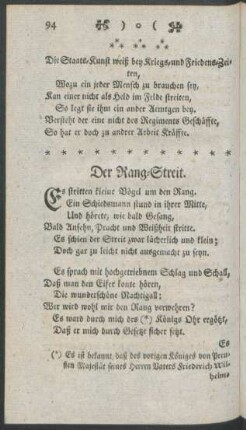 94 ❋ ) o ( ❋
Die Staats-Kunst weiß bey Kriegs-und Friedens-Zei-
ten,
Wozu ein jeder Mensch zu brauchen sey,
Kan einer nicht als Held im Felde streiten,
So legt sie ihm ein ander Aemtgen bey.
Versteht der eine nicht des Regiments Geschäffte,
So hat er doch zu andrer Arbeit Kräffte.
* * * * * * * * * * * * * * * *
Der Rang-Streit.
Es stritten kleine Vögel um den Rang.
Ein Schiedsmann stund in ihrer Mitte,
Und hörete, wie bald Gesang,
Bald Ansehn, Pracht und Weißheit stritte.
Es schien der Streit zwar lächerlich und klein;
Doch gar zu leicht nicht ausgemacht zu seyn.
Es sprach mit hochgetriebnem Schlag und Schall,
Daß man den Eifer konte hören,
Die wunderschöne Nachtigall:
Wer wird wohl mir den Rang verwehren?
Es ward durch mich des (*) Königs Ohr ergötzt,
Daß er mich durch Gesetz sicher setzt.
Es
(*) Es ist bekannt, daß des vorigen Königes von Preus-
sen Majestät seines Herren Vaters Friederich Wil-
helms